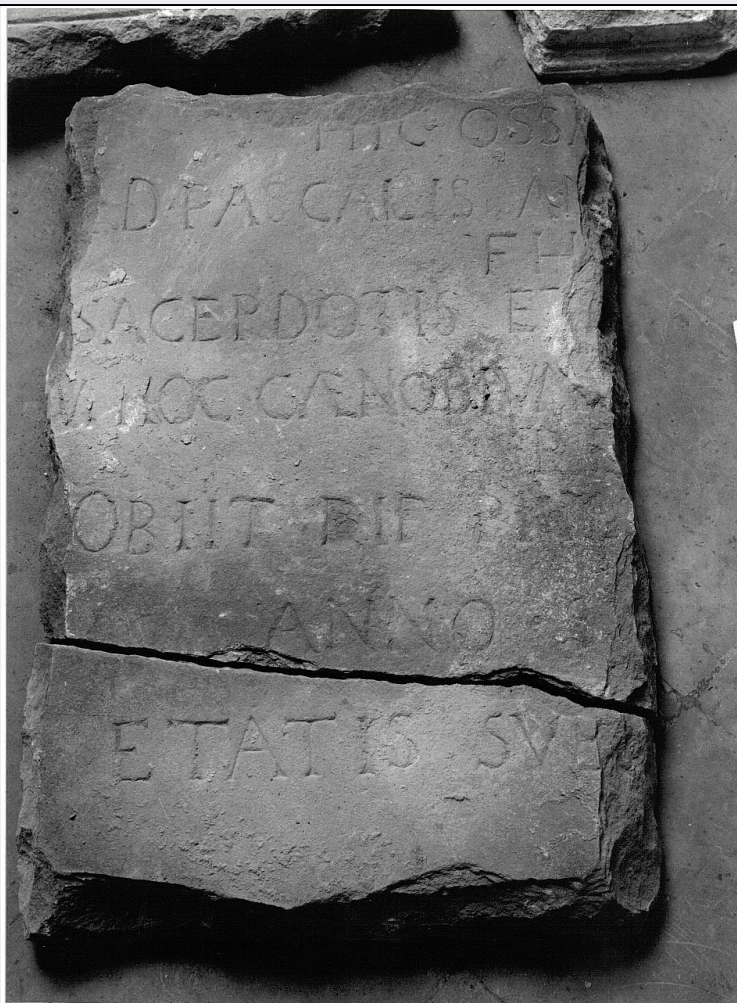 HIC OSSA
D·PASCALIS
SACERDOTIS ET
HOC·CÆNOBIVM
OBIIT DIE
ANNO
ETATIS SVÆ